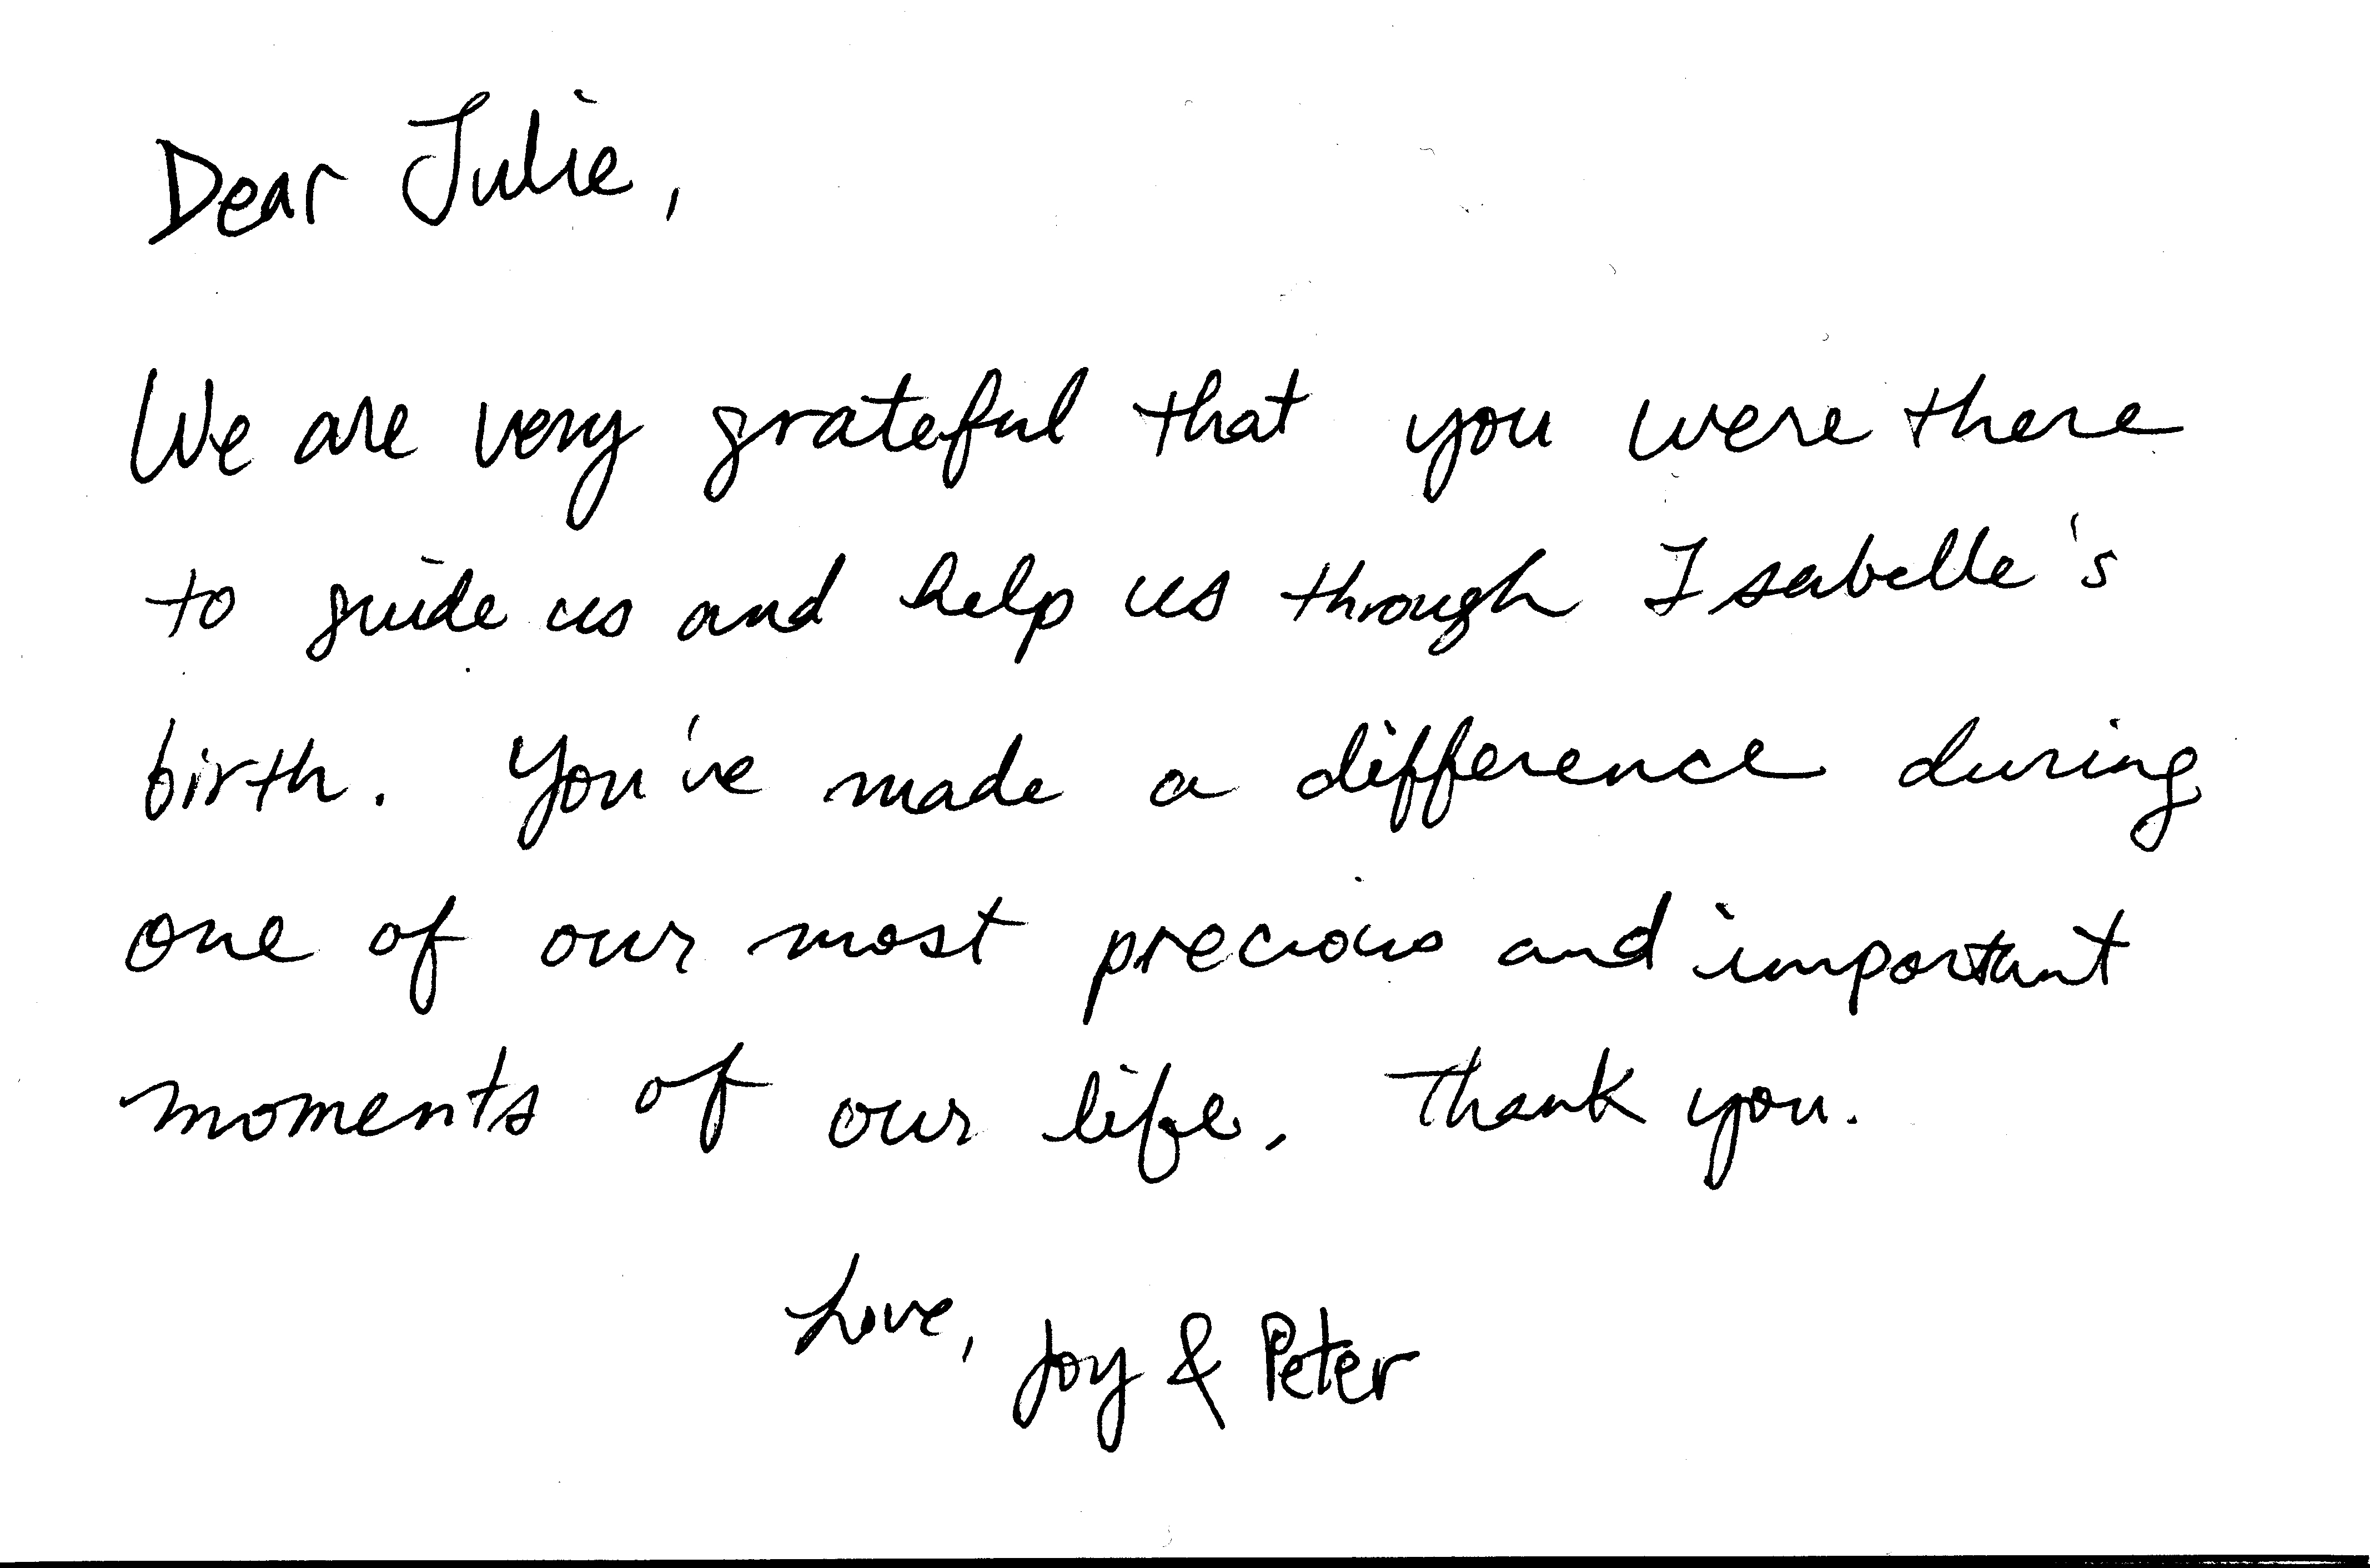 Dear Julie,
We are very grateful that you were there
to guide us and help us through Isabelle's
birth. You've made a difference during
one of our most precious and important
moments of our life. Thank you.
Love, Joy & Peter